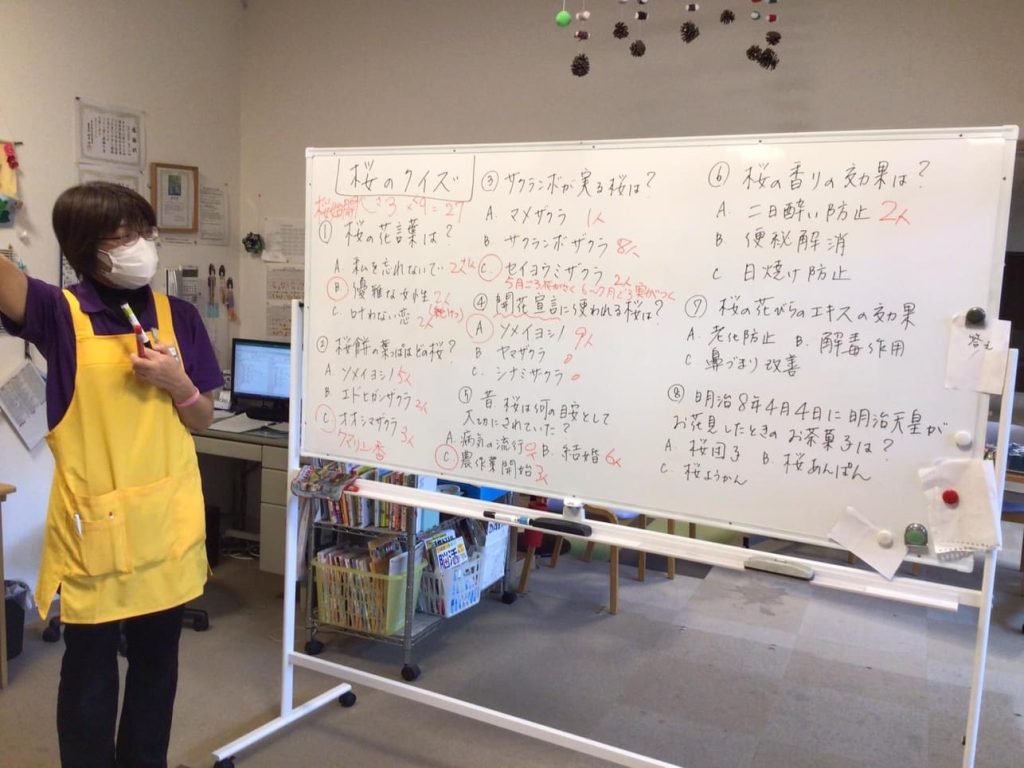 桜のクイズ
3×9=27
① 桜の花言葉は?
A. 私を忘れないで 2人
B 優雅な女性 2人
C. 叶わない恋 2人
② 桜餅の葉っぱはどの桜?
A ソメイヨシノ 5人
B エドヒガンザクラ 2人
C オオシマザクラ 3人
クマリン香
③ サクランボが実る桜は?
A. マメザクラ 1人
B サクランボザクラ 8人
C. セイヨウミザクラ 2人
5月ごろ花がさく 6〜7月ごろ実がつく
④ 開花宣言に使われる桜は?
A ソメイヨシノ 9人
B ヤマザクラ 0
C. シナミザクラ 0
⑤ 昔 桜は何の目安として
大切にされていた?
A. 病気の流行 0 B. 結婚 6人
C 農作業開始 3人
⑥ 桜の香りの効果は?
A. 二日酔い防止 2人
B. 便秘解消
C 日焼け防止
⑦ 桜の花びらのエキスの効果
A. 老化防止 B. 解毒作用
C 鼻づまり改善
⑧ 明治8年4月4日に明治天皇が
お花見したときの お茶菓子は?
A. 桜団子 B. 桜あんぱん
C. 桜ようかん
脳活